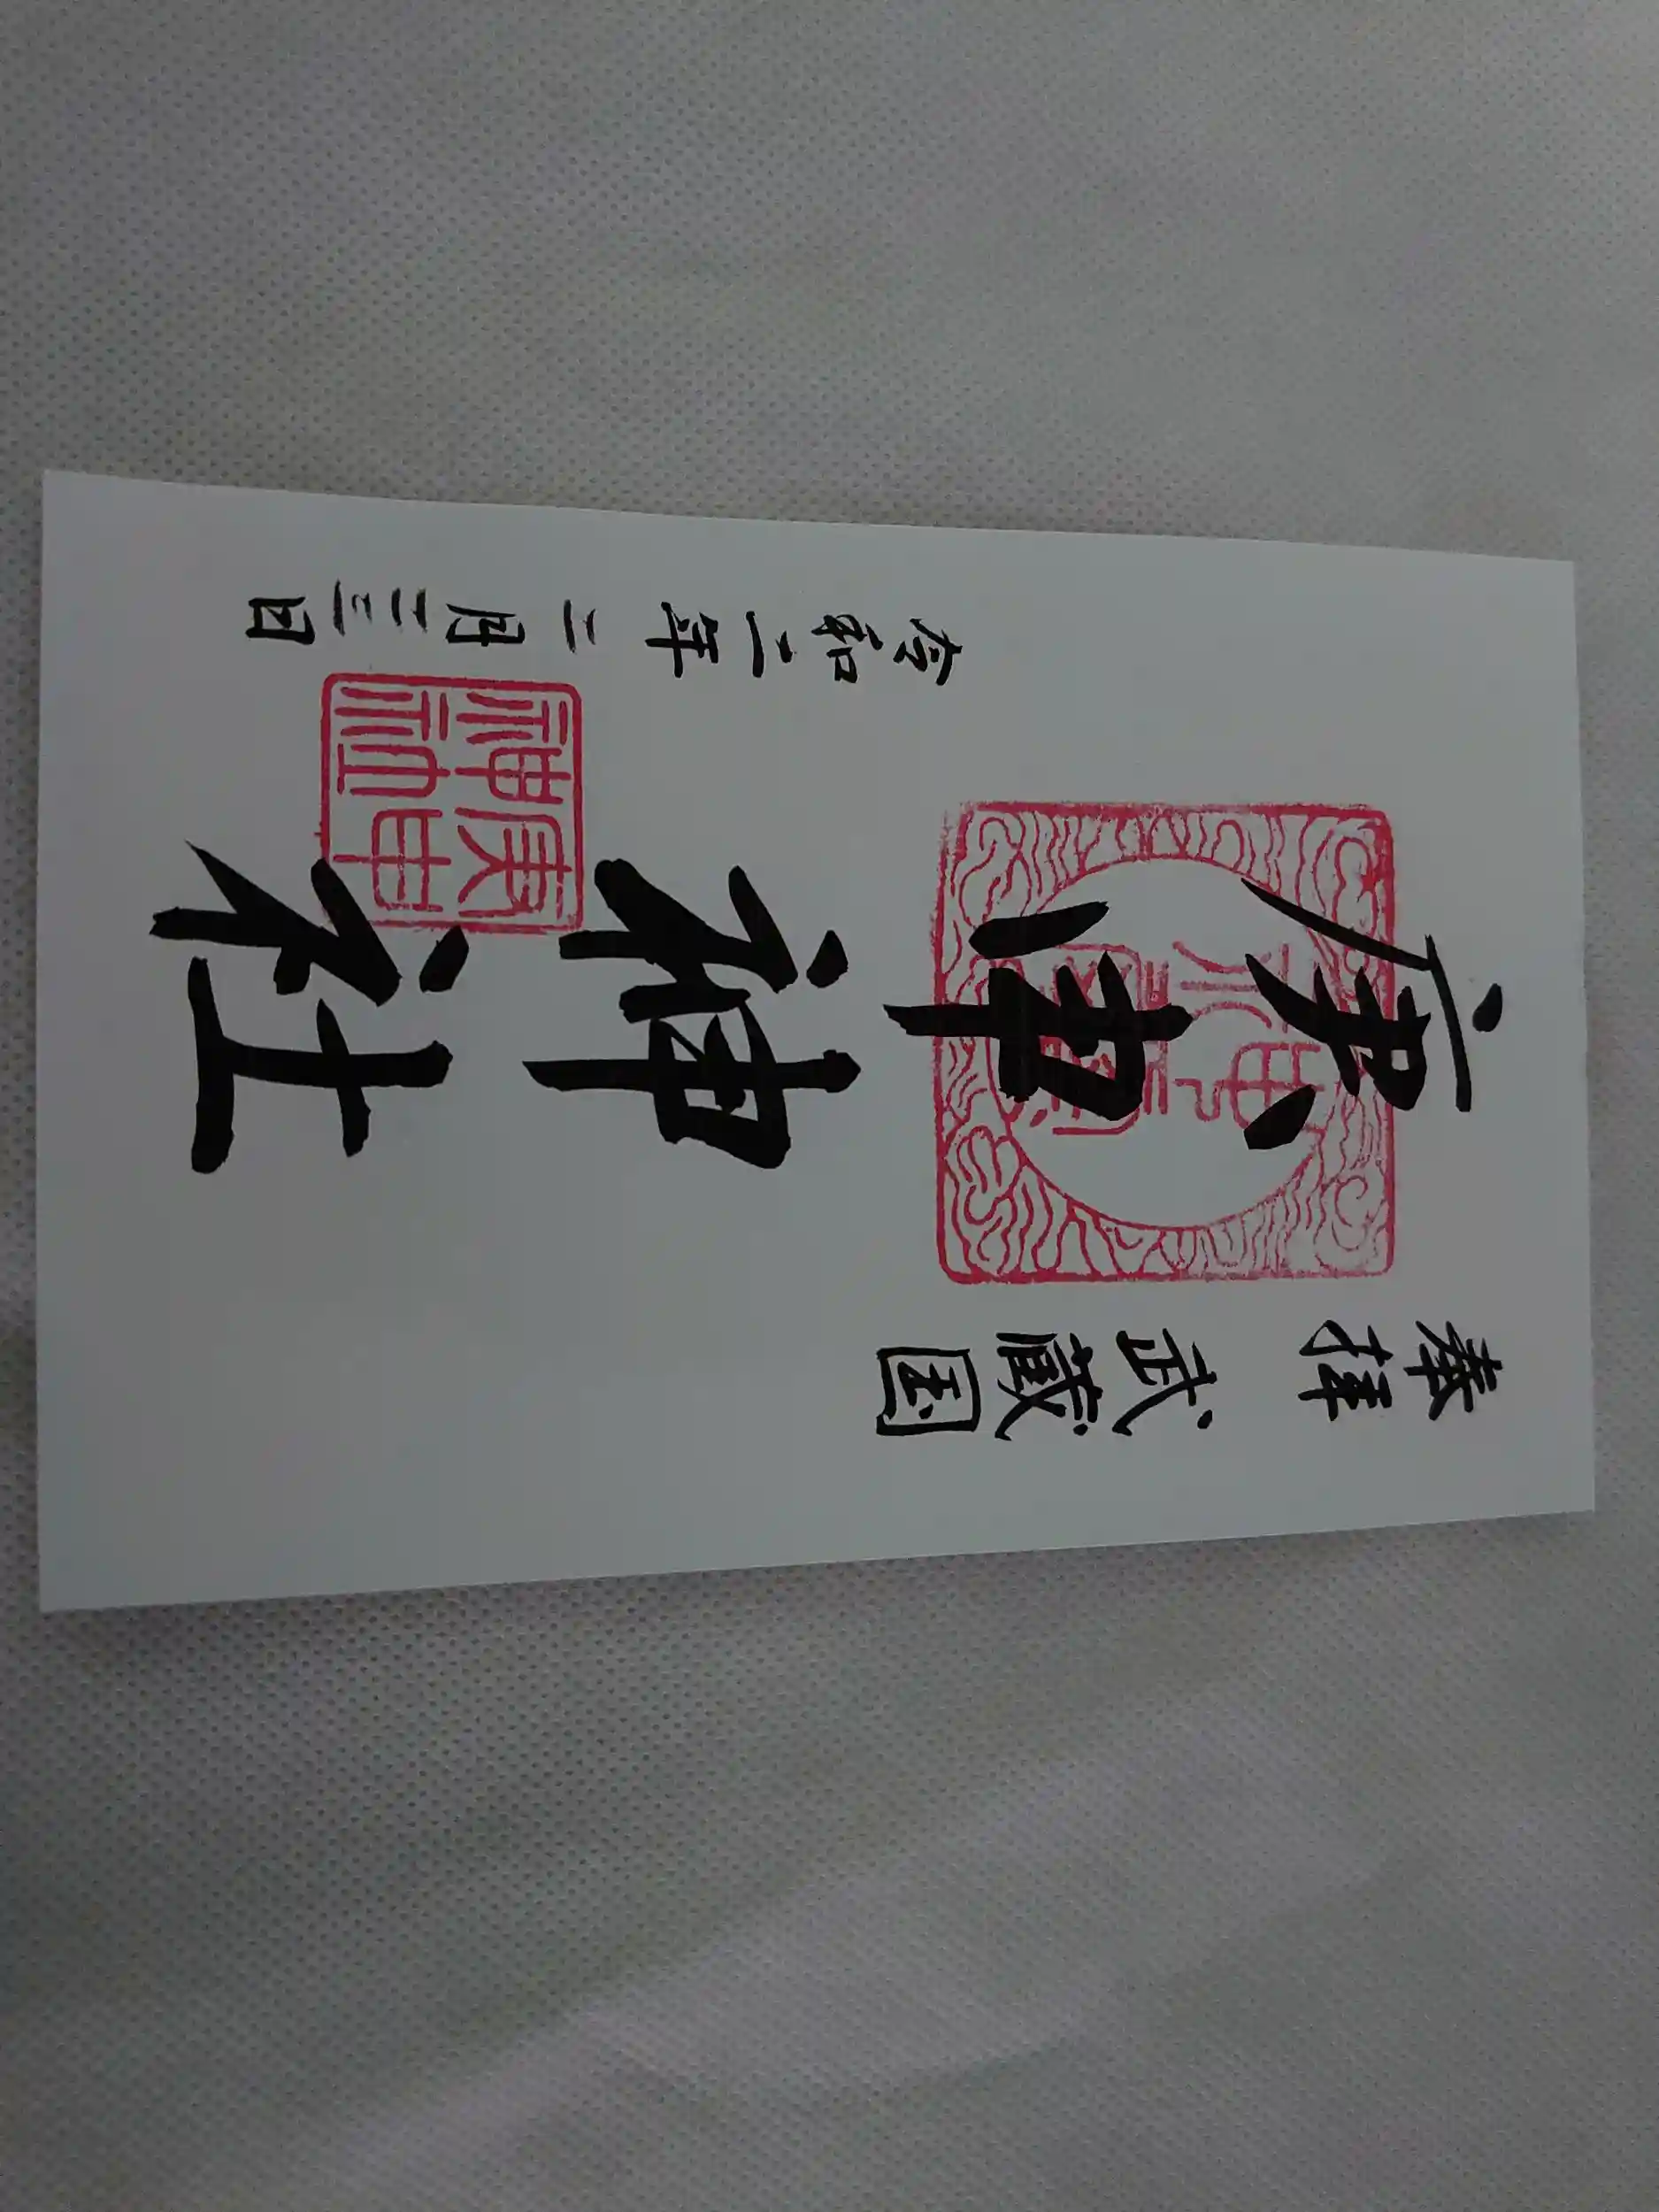 奉拝 武蔵国
庚申神社
庚申神社
令和二年二月二三日